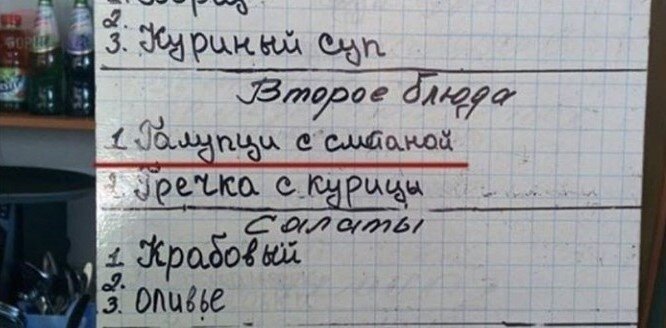 2.
3. Куриный суп
Второе блюда
1. Галупци с смитаной
2 Гречка с курицы
Салаты
1. Крабовый
2.
3. оливье